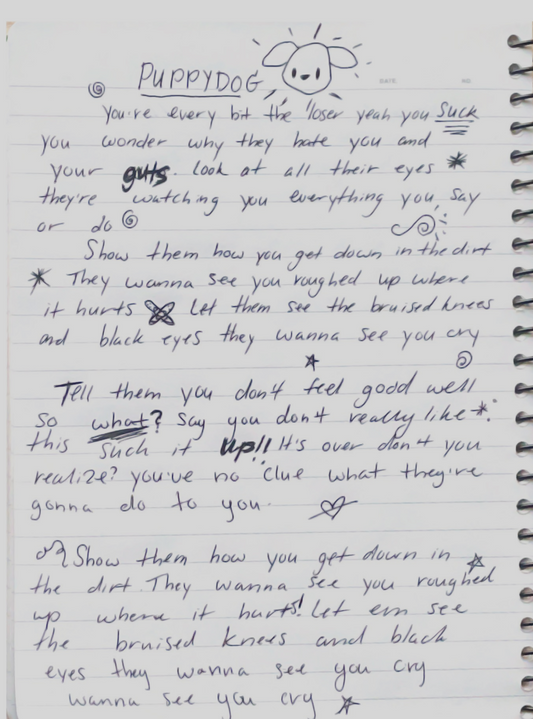 PUPPYDOG
DATE NO
You're every bit the loser yeah you suck
you wonder why they hate you and
your guts. Look at all their eyes
they're watching you everything you say
or do
Show them how you get down in the dirt
They wanna see you roughed up where
it hurts Let them see the bruised knees
and black eyes they wanna see you cry
Tell them you don't feel good well
So what? Say you don't really like
this suck it up!! It's over don't you
realize? you've no clue what they're
gonna do to you.
Show them how you get down in
the dirt. They wanna see you roughed
up where it hurts! Let em see
the bruised knees and black
eyes they wanna see you cry
wanna see you cry